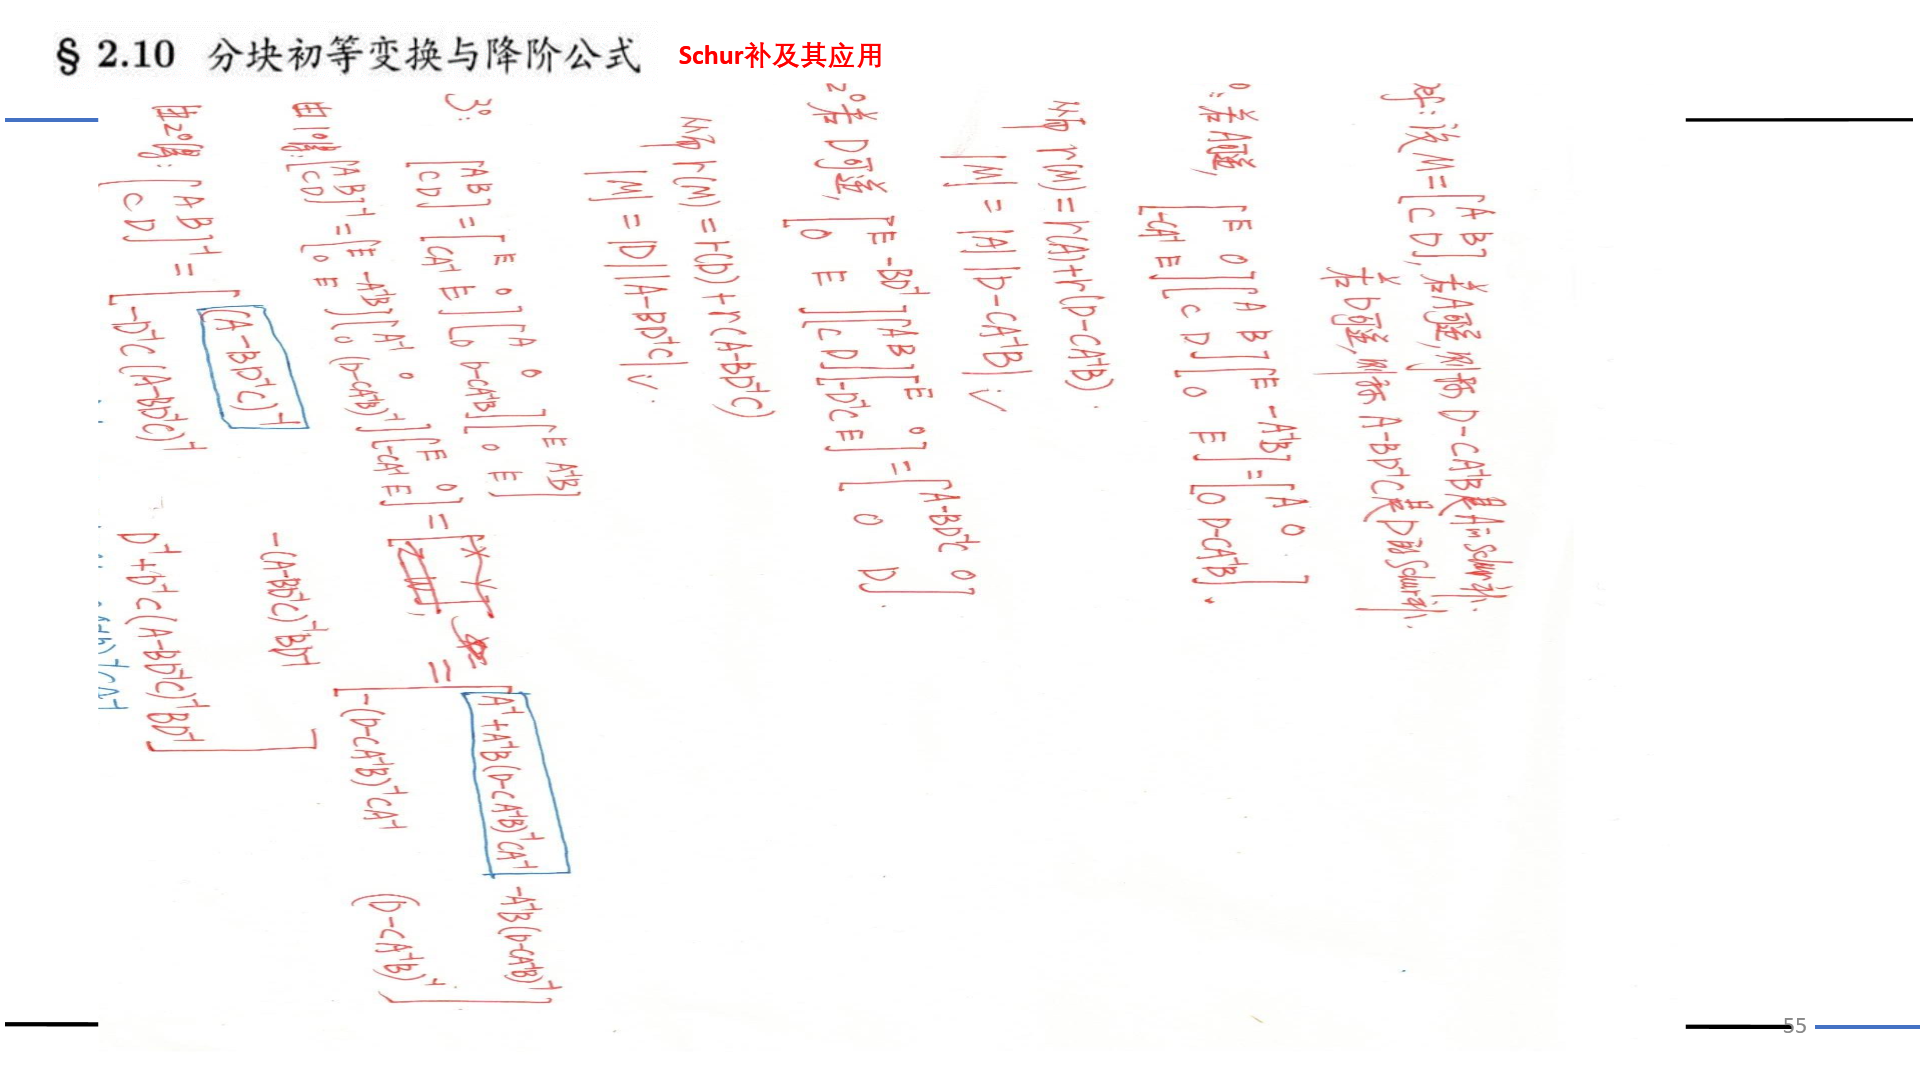 § 2.10 分块初等变换与降阶公式 Schur补及其应用
设M=[A B; C D], 若A可逆, 则称 D-CA⁻¹B是A的Schur补.
若D可逆, 则称 A-BD⁻¹C是D的Schur补.
1°: 若A可逆,
[E O; -CA⁻¹ E][A B; C D][E -A⁻¹B; O E]=[A O; O D-CA⁻¹B].
从而 r(M)=r(A)+r(D-CA⁻¹B).
|M|=|A||D-CA⁻¹B|
2° 若D可逆,
[E -BD⁻¹; O E][A B; C D][E O; -D⁻¹C E]=[A-BD⁻¹C O; O D].
从而 r(M)=r(D)+r(A-BD⁻¹C)
|M|=|D||A-BD⁻¹C|
3°:
[A B; C D]=[E O; CA⁻¹ E][A O; O D-CA⁻¹B][E A⁻¹B; O E]
由1°得: [A B; C D]⁻¹=[E -A⁻¹B; O E][A⁻¹ O; O (D-CA⁻¹B)⁻¹][E O; -CA⁻¹ E]=
=[A⁻¹+A⁻¹B(D-CA⁻¹B)⁻¹CA⁻¹ -A⁻¹B(D-CA⁻¹B)⁻¹; -(D-CA⁻¹B)⁻¹CA⁻¹ (D-CA⁻¹B)⁻¹]
由2°得: [A B; C D]⁻¹=[(A-BD⁻¹C)⁻¹ -(A-BD⁻¹C)⁻¹BD⁻¹; -D⁻¹C(A-BD⁻¹C)⁻¹ D⁻¹+D⁻¹C(A-BD⁻¹C)⁻¹BD⁻¹]
55